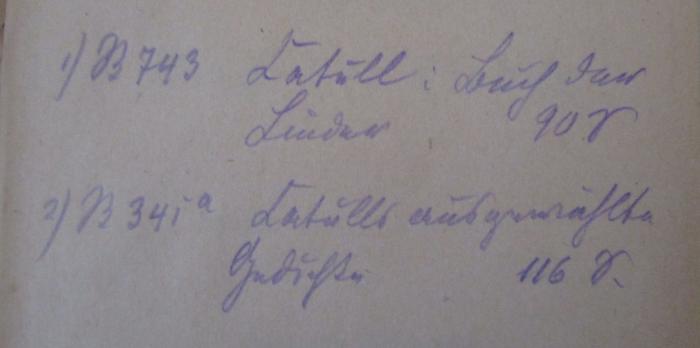 1) B 743 Catull: Buch der
Lieder 90 S
2) B 341a Catulls ausgewählte
Gedichte 116 S.